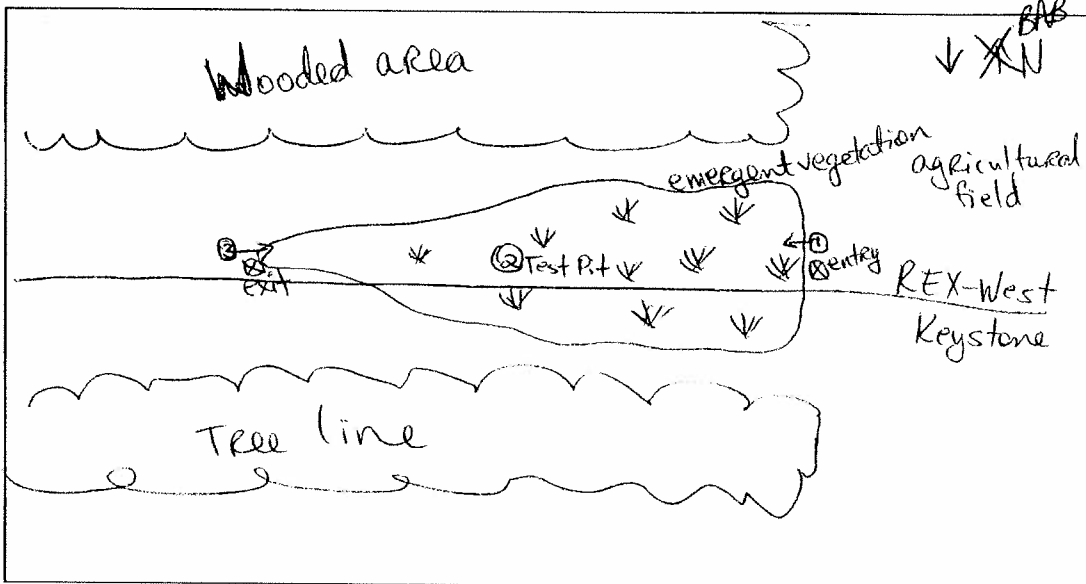 BAB
N
Wooded area
emergent vegetation
agricultural
field
② Test Pit
③
exit
①
entry
REX-West
Keystone
Tree line